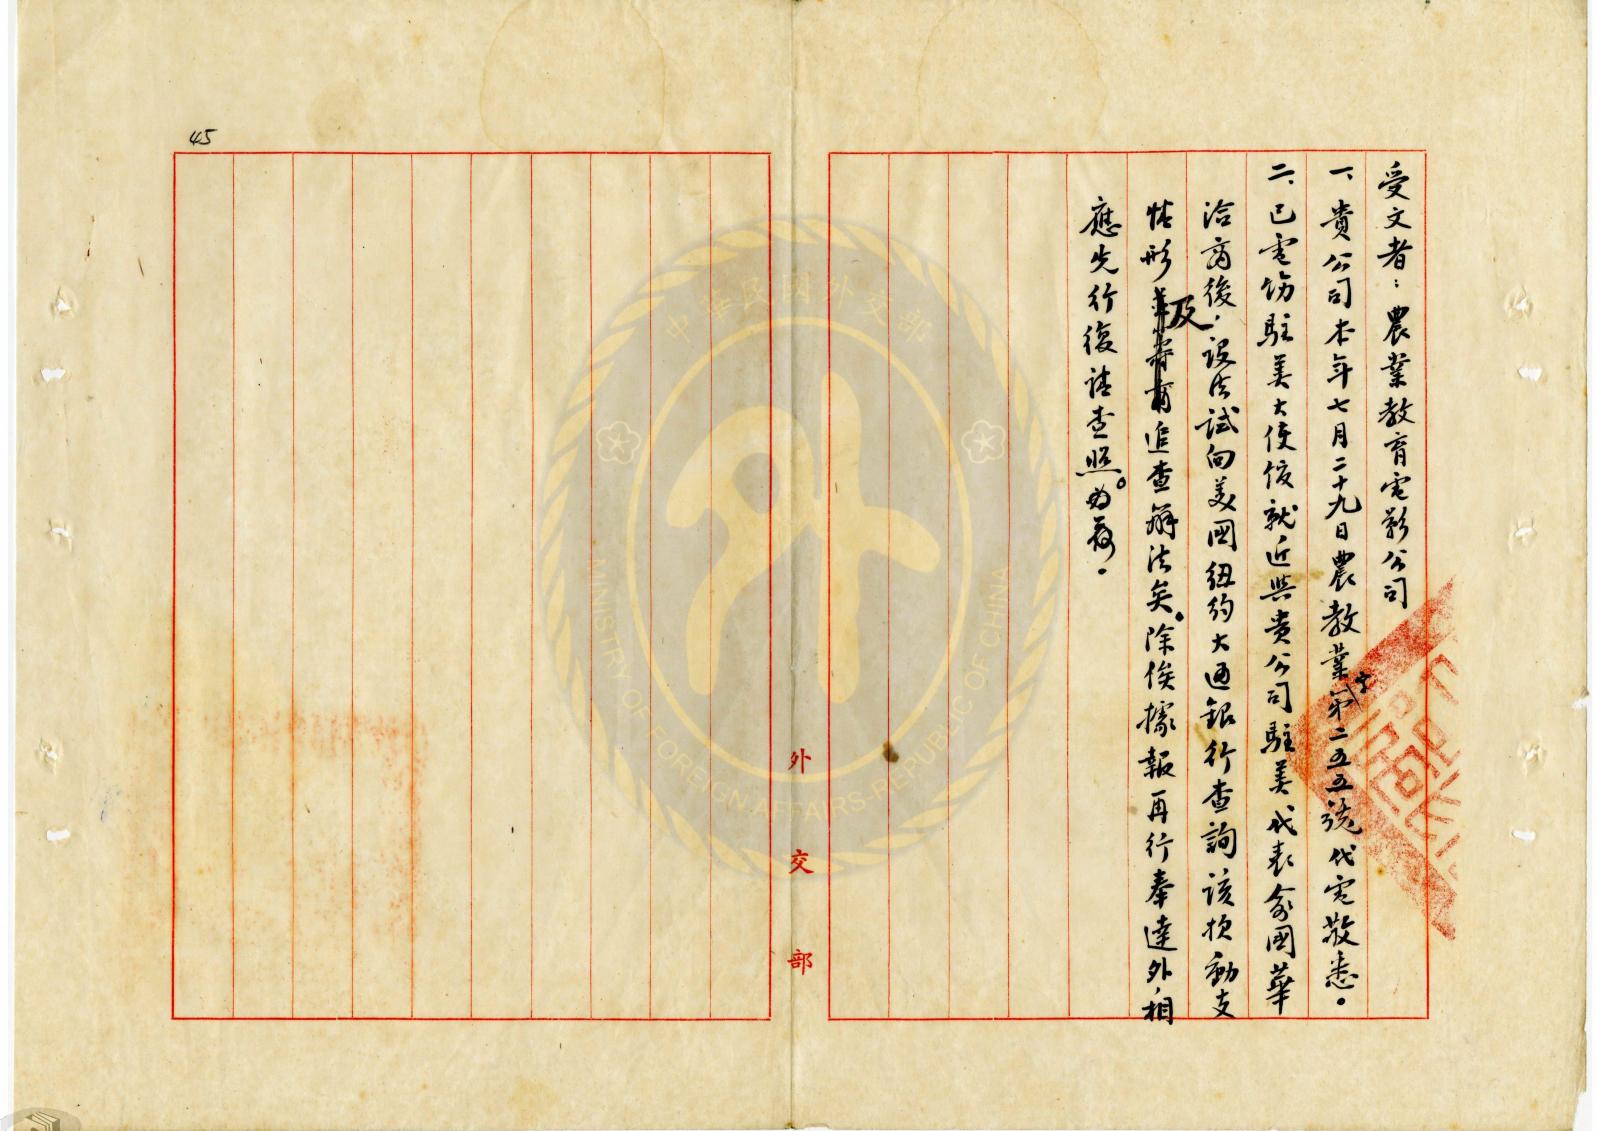 受文者：農業教育電影公司
一、貴公司本年七月二十九日農教業字第二五五號代電敬悉。
二、已電飭駐美大使館就近與貴公司駐美代表俞國華
洽商後，設法試向美國紐約大通銀行查詢該款動支
情形及追查辦法矣。除俟據報再行奉達外，相
應先行復請查照。為荷。
外交部
45
中華民國外交部
MINISTRY OF FOREIGN AFFAIRS·REPUBLIC OF CHINA